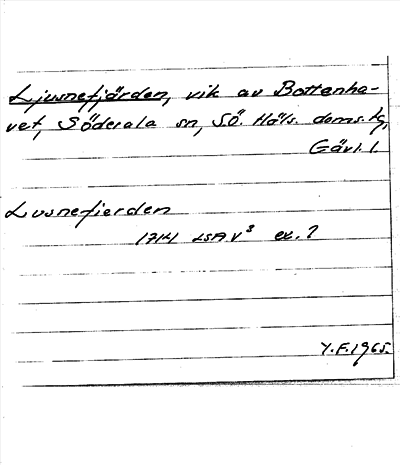 Ljusnefjärden, vik av Bottenha-
vet, Söderala sn, Sö. Häls. doms.tg,
Gävl. l.
Lusnefierden
1714 LSA V³ ex. 7
Y.F. 1965.